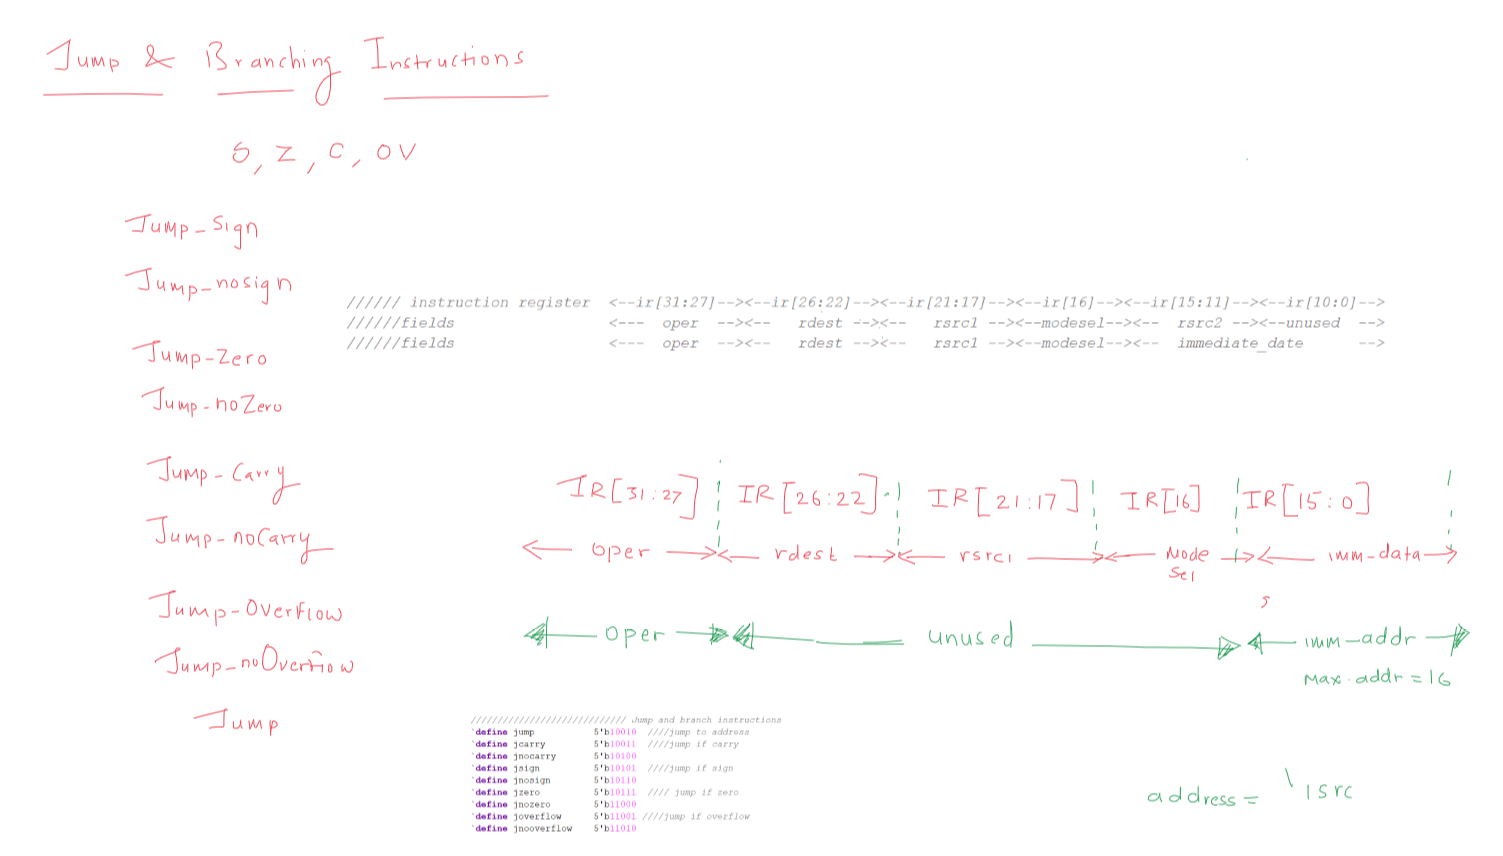 Jump & Branching Instructions
S, Z, C, OV
Jump-Sign
Jump-nosign
Jump-Zero
Jump-noZero
Jump-Carry
Jump-noCarry
Jump-Overflow
Jump-noOverflow
Jump
////// instruction register <--ir[31:27]--><--ir[26:22]--><--ir[21:17]--><--ir[16]--><--ir[15:11]--><--ir[10:0]-->
//////fields <--- oper --><-- rdest --><-- rsrc1 --><--modesel--><-- rsrc2 --><--unused -->
//////fields <--- oper --><-- rdest --><-- rsrc1 --><--modesel--><-- immediate_date -->
IR[31:27] IR[26:22] IR[21:17] IR[16] IR[15:0]
oper rdest rsrc1 Mode imm-data
Sel
s
oper unused imm-addr
Max.addr = 16
////////////////////////////// Jump and branch instructions
`define jump 5'b10010 ////jump to address
`define jcarry 5'b10011 ////jump if carry
`define jnocarry 5'b10100
`define jsign 5'b10101 ////jump if sign
`define jnosign 5'b10110
`define jzero 5'b10111 //// jump if zero
`define jnozero 5'b11000
`define joverflow 5'b11001 ////jump if overflow
`define jnooverflow 5'b11010
address = \ isrc